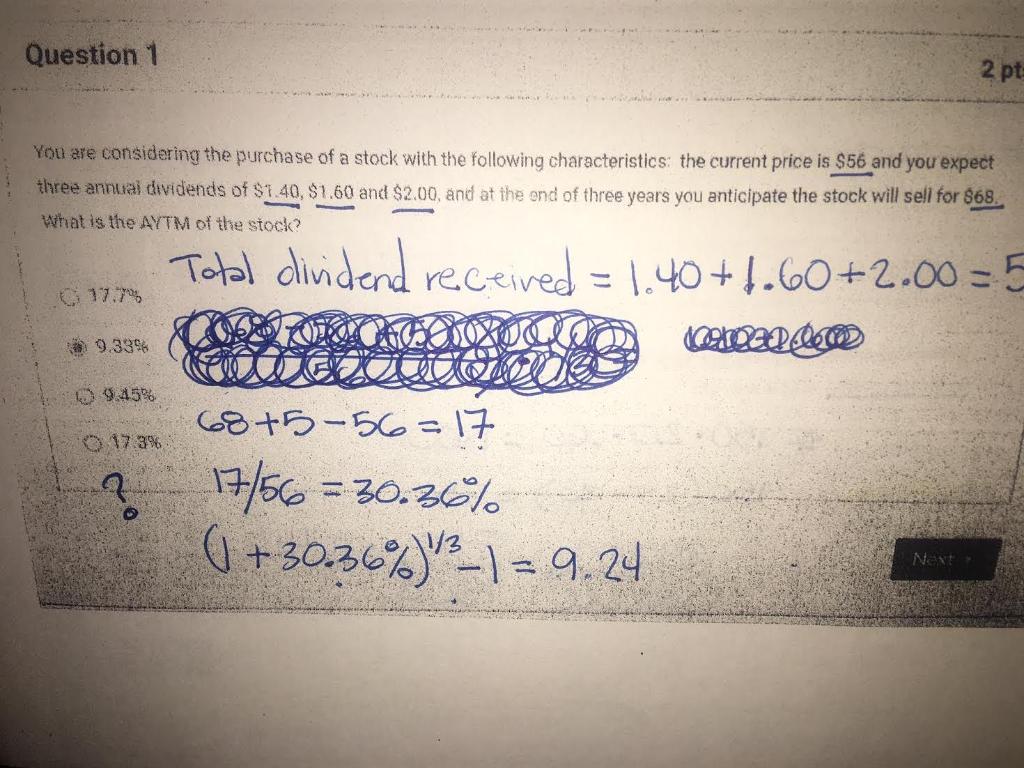 Question 1
2 pt
You are considering the purchase of a stock with the following characteristics: the current price is $56 and you expect
three annual dividends of $1.40, $1.60 and $2.00, and at the end of three years you anticipate the stock will sell for $68.
What is the AYTM of the stock?
Total dividend received = 1.40+1.60+2.00=5
17.7%
9.33%
9.45%
68+5-56=17
17.3%
? 17/56 = 30.36%
(1+30.36%)^1/3 -1 = 9.24
Next